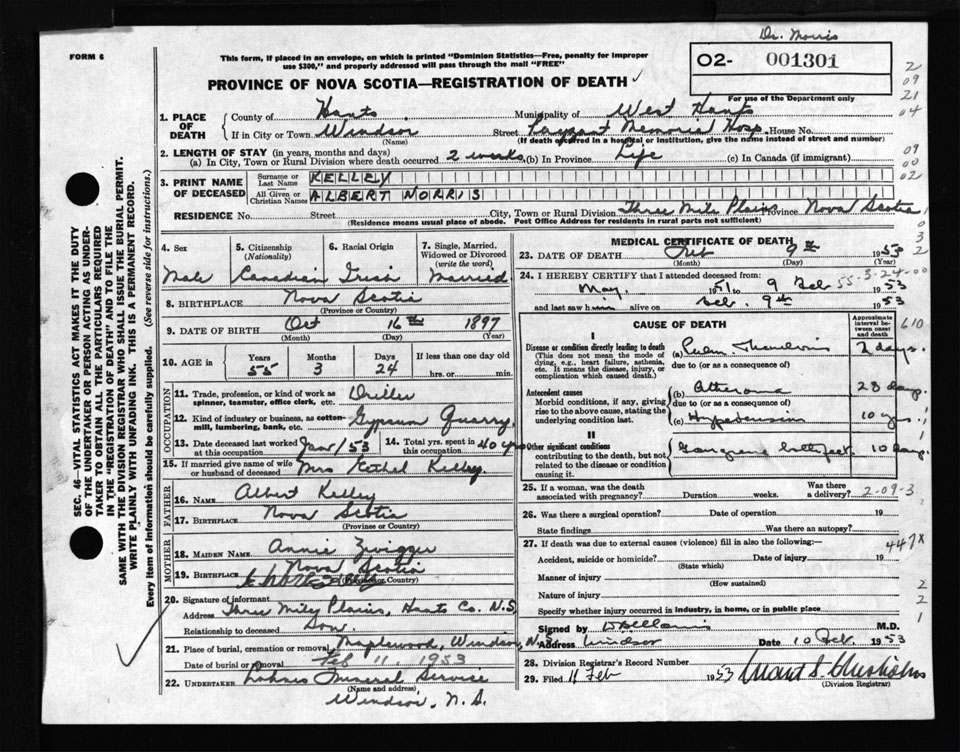 Dr. Morris
FORM 6
This form, if placed in an envelope, on which is printed "Dominion Statistics—Free, penalty for improper
use $300," and properly addressed will pass through the mail "FREE"
02- 001301
PROVINCE OF NOVA SCOTIA—REGISTRATION OF DEATH
For use of the Department only
1. PLACE OF DEATH
County of Hants Municipality of West Hants
If in City or Town Windsor Street Payzant Memorial Hosp. House No.
(Name) (If death occurred in a hospital or institution, give the name instead of street and number)
2. LENGTH OF STAY (in years, months and days)
(a) In City, Town or Rural Division where death occurred 2 weeks (b) In Province Life (c) In Canada (if immigrant)
3. PRINT NAME OF DECEASED
Surname or Last Name KELLEY
All Given or Christian Names ALBERT NORRIS
RESIDENCE No. Street City, Town or Rural Division Three Mile Plains Province Nova Scotia
(Residence means usual place of abode. Post Office Address for residents in rural parts not sufficient)
4. Sex
Male
5. Citizenship
(Nationality)
Canadian
6. Racial Origin
7. Single, Married, Widowed or Divorced
(write the word)
Married
8. BIRTHPLACE Nova Scotia
(Province or Country)
9. DATE OF BIRTH Oct 16th 1897
(Month) (Day) (Year)
10. AGE in Years Months Days If less than one day old
55 3 24 hrs. or min.
OCCUPATION
11. Trade, profession, or kind of work as spinner, teamster, office clerk, etc. Driller
12. Kind of industry or business, as cotton-mill, lumbering, bank, etc. Gypsum Quarry
13. Date deceased last worked at this occupation Jan/53
14. Total yrs. spent in this occupation 40 yrs
15. If married give name of wife or husband of deceased Mrs Ethel Kelley
FATHER
16. NAME Albert Kelley
17. BIRTHPLACE Nova Scotia
(Province or Country)
MOTHER
18. MAIDEN NAME Annie Zwigger
19. BIRTHPLACE Nova Scotia
(Province or Country)
20. Signature of informant
Address Three Mile Plains, Hants Co. N.S.
Relationship to deceased Son.
21. Place of burial, cremation or removal Maplewood, Windsor, N.S.
Date of burial or removal Feb 11. 1953
22. UNDERTAKER Funeral Service
(Name and address)
Windsor, N.S.
MEDICAL CERTIFICATE OF DEATH
23. DATE OF DEATH Feb 9th 1953
(Month) (Day) (Year)
24. I HEREBY CERTIFY that I attended deceased from
May 1951 to 9 Feb 1953
55-3-24-00
and last saw him alive on Feb. 9th 1953
CAUSE OF DEATH
Approximate interval between onset and death
I
Disease or condition directly leading to death (a) 2 days.
(This does not mean the mode of dying, e.g., heart failure, asthenia, etc. It means the disease, injury, or complication which caused death.)
due to (or as a consequence of)
Antecedent causes (b) Atheroma 28 days
Morbid conditions, if any, giving rise to the above cause, stating the underlying condition last.
due to (or as a consequence of)
(c) Hypertension 10 yrs.
II
Other significant conditions Gangrene both feet. 10 days.
contributing to the death, but not related to the disease or condition causing it.
25. If a woman, was the death associated with pregnancy? Duration weeks. Was there a delivery? 2-09-3
26. Was there a surgical operation? Date of operation 19
State findings Was there an autopsy?
27. If death was due to external causes (violence) fill in also the following:— 447X
Accident, suicide or homicide? Date of injury 19
(State which)
Manner of injury
(How sustained)
Nature of injury
Specify whether injury occurred in industry, in home, or in public place
Signed by M.D.
Address Windsor Date 10 Feb. 1953
28. Division Registrar's Record Number
29. Filed 11 Feb 1953
(Division Registrar)
SEC. 46—VITAL STATISTICS ACT MAKES IT THE DUTY
OF THE UNDERTAKER OR PERSON ACTING AS UNDER-
TAKER TO OBTAIN ALL THE PARTICULARS REQUIRED
IN THE "REGISTRATION OF DEATH" AND TO FILE THE
SAME WITH THE DIVISION REGISTRAR WHO SHALL ISSUE THE BURIAL PERMIT.
WRITE PLAINLY WITH UNFADING INK. THIS IS A PERMANENT RECORD.
Every item of information should be carefully supplied. (See reverse side for instructions.)
2
09
21
04
09
00
02
610